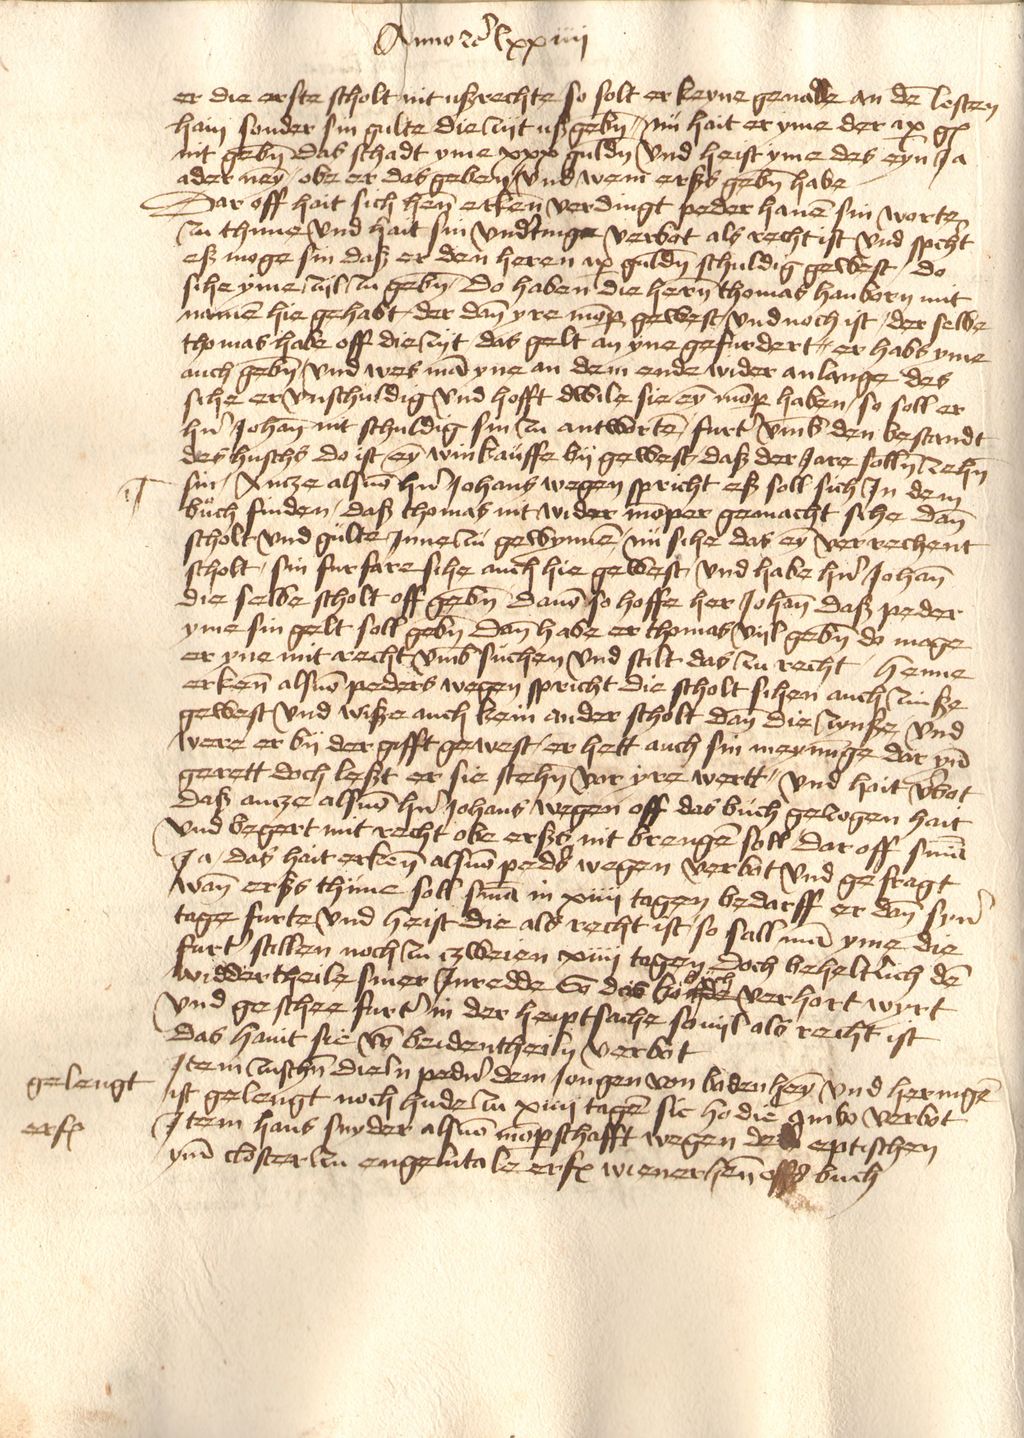 Anno rc lxxiiii
er die erste scholt nit ußrechte so solt er keyne genade an dē lesten
han sonder sin gulte die zijt ußgebn̄ / nū hait er yme der xx gl
nit gebn̄ das schadt yme xxx guldn̄ Und heist yme des eyn Ja
ader ney / obe er das geben / und wem erßs gebn̄ habe
Dar off hait sich henn erken̄ verdingt peder hanē sin worte
zu thune und hait sin underding verbot als recht ist und spricht
eß moge sin daß er den heren xx guldn̄ schuldig gewest / do
sihe yme zijl zu gebn̄ Do haben die hern̄ thomas hanborn mit
namē hie gehabt der dan̄ yre momper gewest und noch ist / der selbe
thomas habe off die zijt das gelt an yne gefurdert / er habs yme
auch gebn̄ und wes mā yne an dem ende wider anlange des
sihe er unschuldig und hofft dwile sie eyn momper haben / so soll er
hrn Johan̄ nit schuldig sin zu antworten furter umb den bestandt
des huschs do ist eyn winkauffe bij gewest / daß der Jare solln̄ zehn̄
sin / Antze alsuo hrn Johans wegen spricht eß soll sich In dem
buch finden / daß thomas nit wider momper gemacht sihe dan̄
scholt und gulte Inne zu gewynnē / nū sihe das ey verrechent
scholt / sin furfare sihe auch hie gewest und habe hrn Johan̄
die selbe scholt off gebn̄ Davō so hoffe her Johan̄ daß peder
yme sin gelt soll gebn̄ Dan̄ habe er thomas vijl gebn̄ do moge
er yne mit recht umb suchen und stilt das zu recht Henne
erken̄ alsuō peders wegen spricht die scholt sihen auch zinße
gewest und wiße auch kein ander scholt dan̄ die zinße und
were er bij der gifft gewest / er hett auch sin meynūge dar yn̄
gerett doch leßt er sie stehn̄ vor yre wertt / und hait verbot
daß antze alsuō hrn Johans wegen off das buch gezogen hait
und begert mit recht obe erßs nit brengē soll / dar off snia
Ja / das hait erken̄ alsuō peders wegen verbot und gefragt
wan̄ erßs thūne soll snia in xiiii tagen bedarff er dan̄ syner
tage furte und heist die als recht ist so sall mā yme die
furter stillen noch zu zweien xiiii tagen Doch beheltlich dē
widdertheile siner Inredde So das buch verhort wyrt
und geschee furter in der heuptsache souijl als recht ist
das hant sie von beidentheiln̄ verbot
gelengt
Item zuschn̄ dieln peder dem Jongen von bodenheym und heringē
ist gelengt noch hude zu xiiii tagē sic hodie ambo verbot
erfx
Item hans snyder alsuō mompschafft wegen der eptischen
ym closter zu engelntale erfx wiener hen̄ offs buch